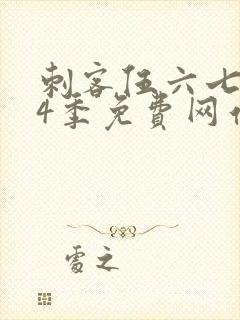 刺客伍六七
4季免费网
霞之